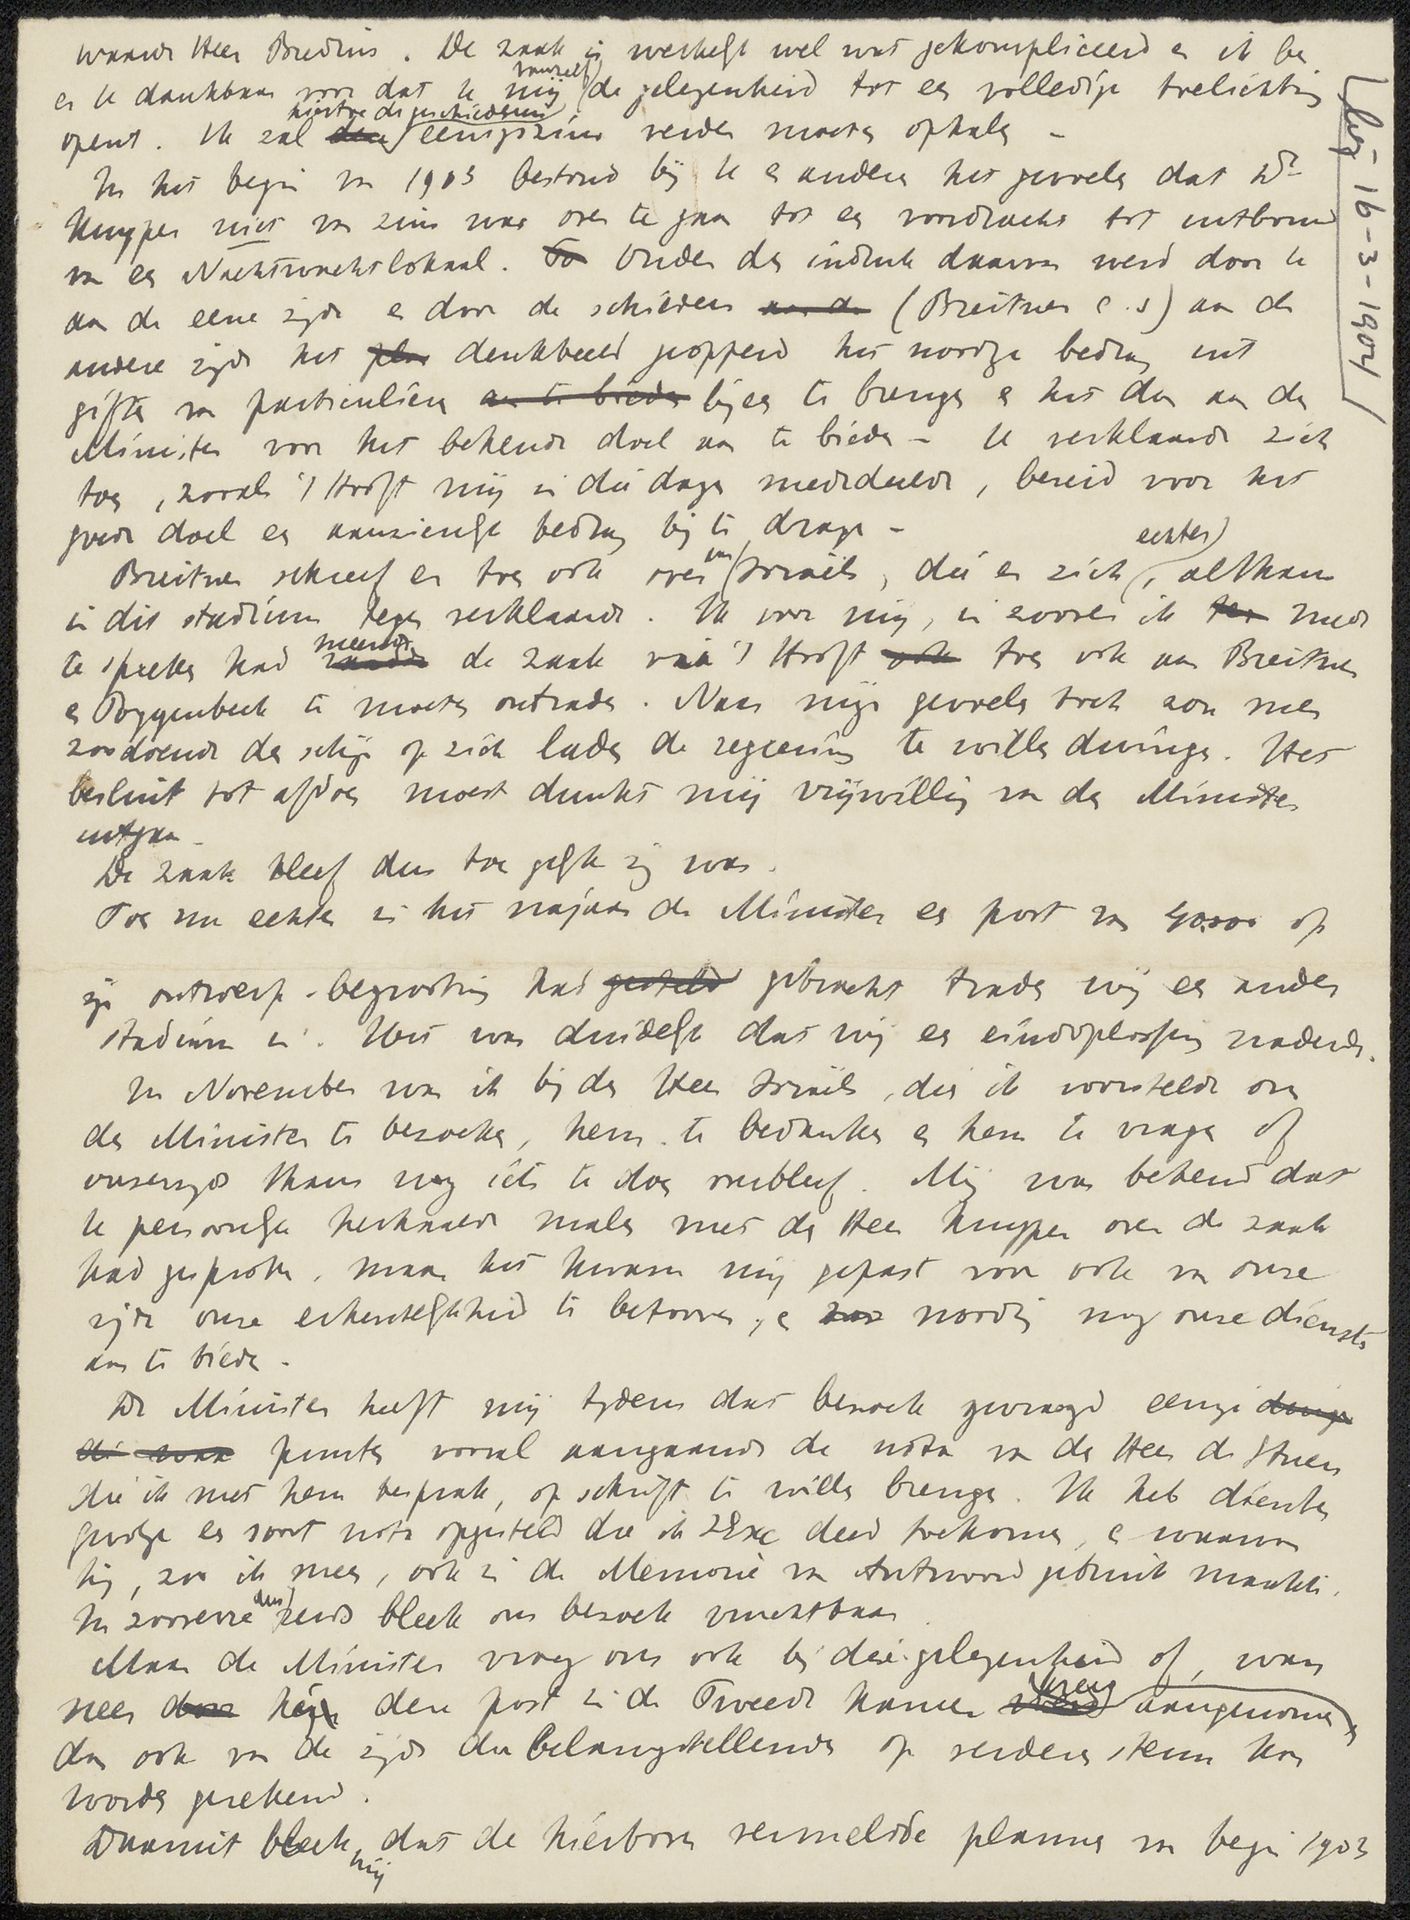 Waarde Heer Bredius. De zaak is werkelijk wel wat gekompliceerd en ik ben
er U dankbaar voor dat U mij vanzelf de gelegenheid tot een volledige toelichting
opent. Ik zal hiertoe de geschiedenis eenigszins verder moeten ophalen –
In het begin van 1903 bestond bij U en anderen het gevoelen dat Dr
Kuyper niet van zins was over te gaan tot een voordracht tot uitbouw
van een Nachtwachtslokaal. Onder den indruk daarvan werd door U
aan de eene zijde en door de schilders (Breitner c.s) aan de
andere zijde het denkbeeld geopperd het noodige bedrag uit
giften van particulieren bijeen te brengen en het dan aan den
Minister voor het bekende doel aan te bieden – U verklaarde zich
toen, zooals 't Hooft mij in die dagen mededeelde, bereid voor het
goede doel een aanzienlijk bedrag bij te dragen –
Breitner schreef er toen ook over aan Israëls, die er zich echter, althans
in dit stadium tegen verklaarde. Ik voor mij, in zooverre ik mede
te spreken had meende de zaak via 't Hooft toen ook aan Breitner
en Poggenbeek te moeten ontraden. Naar mijn gevoelen toch zou men
zoodoende den schijn op zich laden de regeering te willen dwingen. Het
besluit tot afdoen moest dunkt mij vrijwillig van den Minister
uitgaan –
De zaak bleef dus toen gelijk zij was.
Toen nu echter in het najaar de Minister een post van 40.000 op
zijn ontwerp-begrooting had gebracht traden wij een ander
stadium in. Het was duidelijk dat wij een eindoplossing naderden.
In November was ik bij den Heer Israëls, die ik voorstelde om
den Minister te bezoeken, hem te bedanken en hem te vragen of
onzerzijds thans nog iets te doen overbleef. Mij was bekend dat
U persoonlijk herhaalde malen met den Heer Kuyper over de zaak
had gesproken, maar het kwam mij gepast voor ook van onze
zijde onze erkentelijkheid te betoonen, en noodig nog onze diensten
aan te bieden –
De Minister heeft mij tijdens dat bezoek gevraagd eenige
punten vooral aangaande de nota van den Heer de Stuers
die ik met hem besprak, op schrift te willen brengen. Ik heb dienten
gevolge een soort nota opgesteld die ik ZExc deed toekomen, en waarvan
hij, zoo ik meen, ook in de Memorie van Antwoord gebruik maakte.
In zooverre dus reeds bleek ons bezoek vruchtbaar.
Maar de Minister vroeg ons ook bij die gelegenheid of, wan
neer hij deze post in de Tweede kamer kreeg aangenomen,
dan ook van de zijde der belangstellenden op verderen steun kon
worden gerekend.
Daaruit bleek mij, dat de hierboven vermelde plannen van begin 1903
Bij 16-3-1904